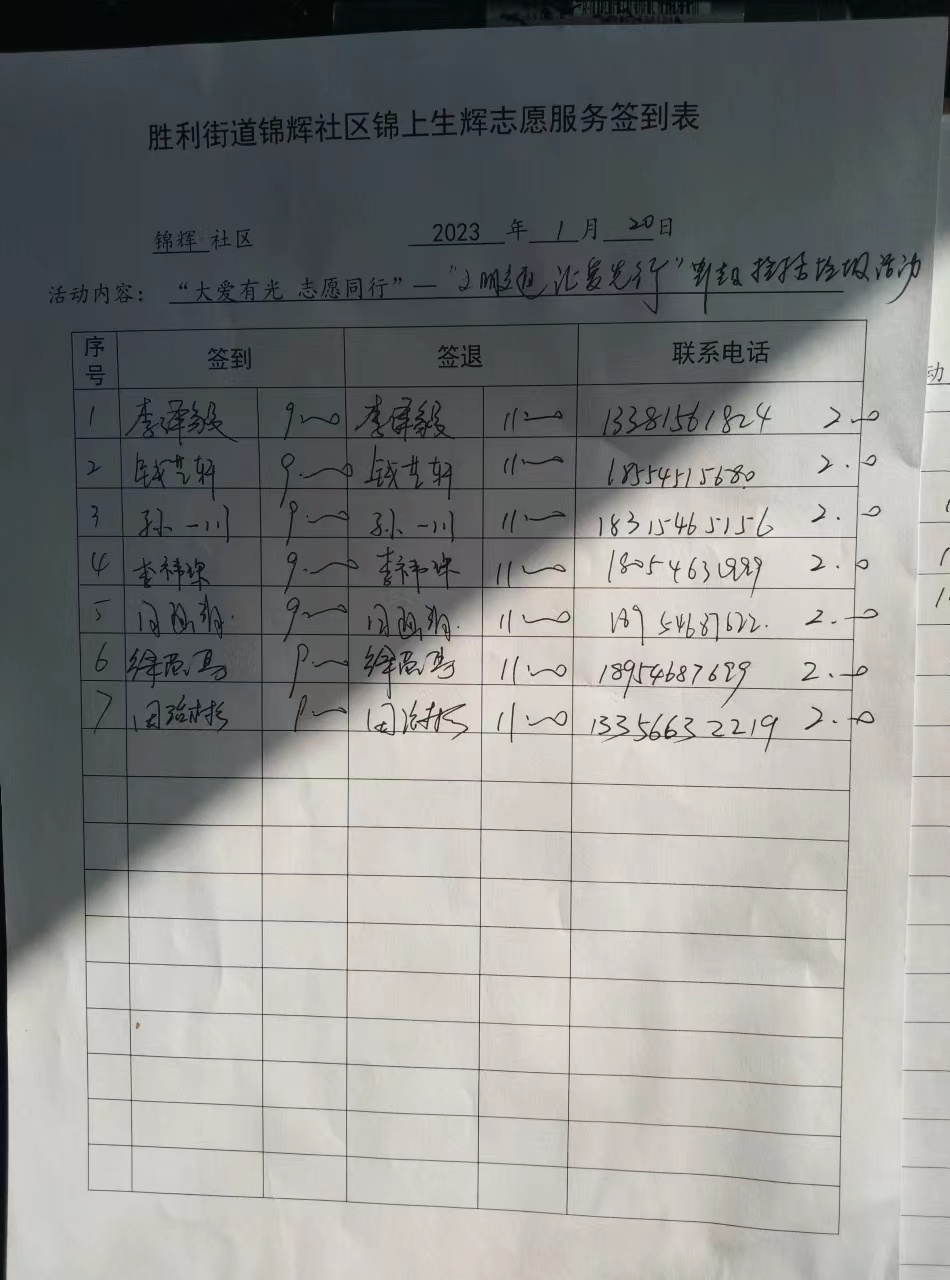 胜利街道锦辉社区锦上生辉志愿服务签到表
锦辉 社区 2023 年 1 月 20 日
活动内容： “大爱有光 志愿同行”—“文明 先行” 捡拾垃圾活动
序号 签到 签退 联系电话
1 李泽毅 9:00 李泽毅 11:00 13381561824 2.0
2 钱 轩 9:00 钱 轩 11:00 18554515680 2.0
3 孙一川 9:00 孙一川 11:00 18315465156 2.0
4 李祎琛 9:00 李祎琛 11:00 2.0
5 9:00 11:00 18954687622. 2.0
6 徐 9:00 徐 11:00 18954687699 2.0
7 9:00 11:00 13356632219 2.0
动